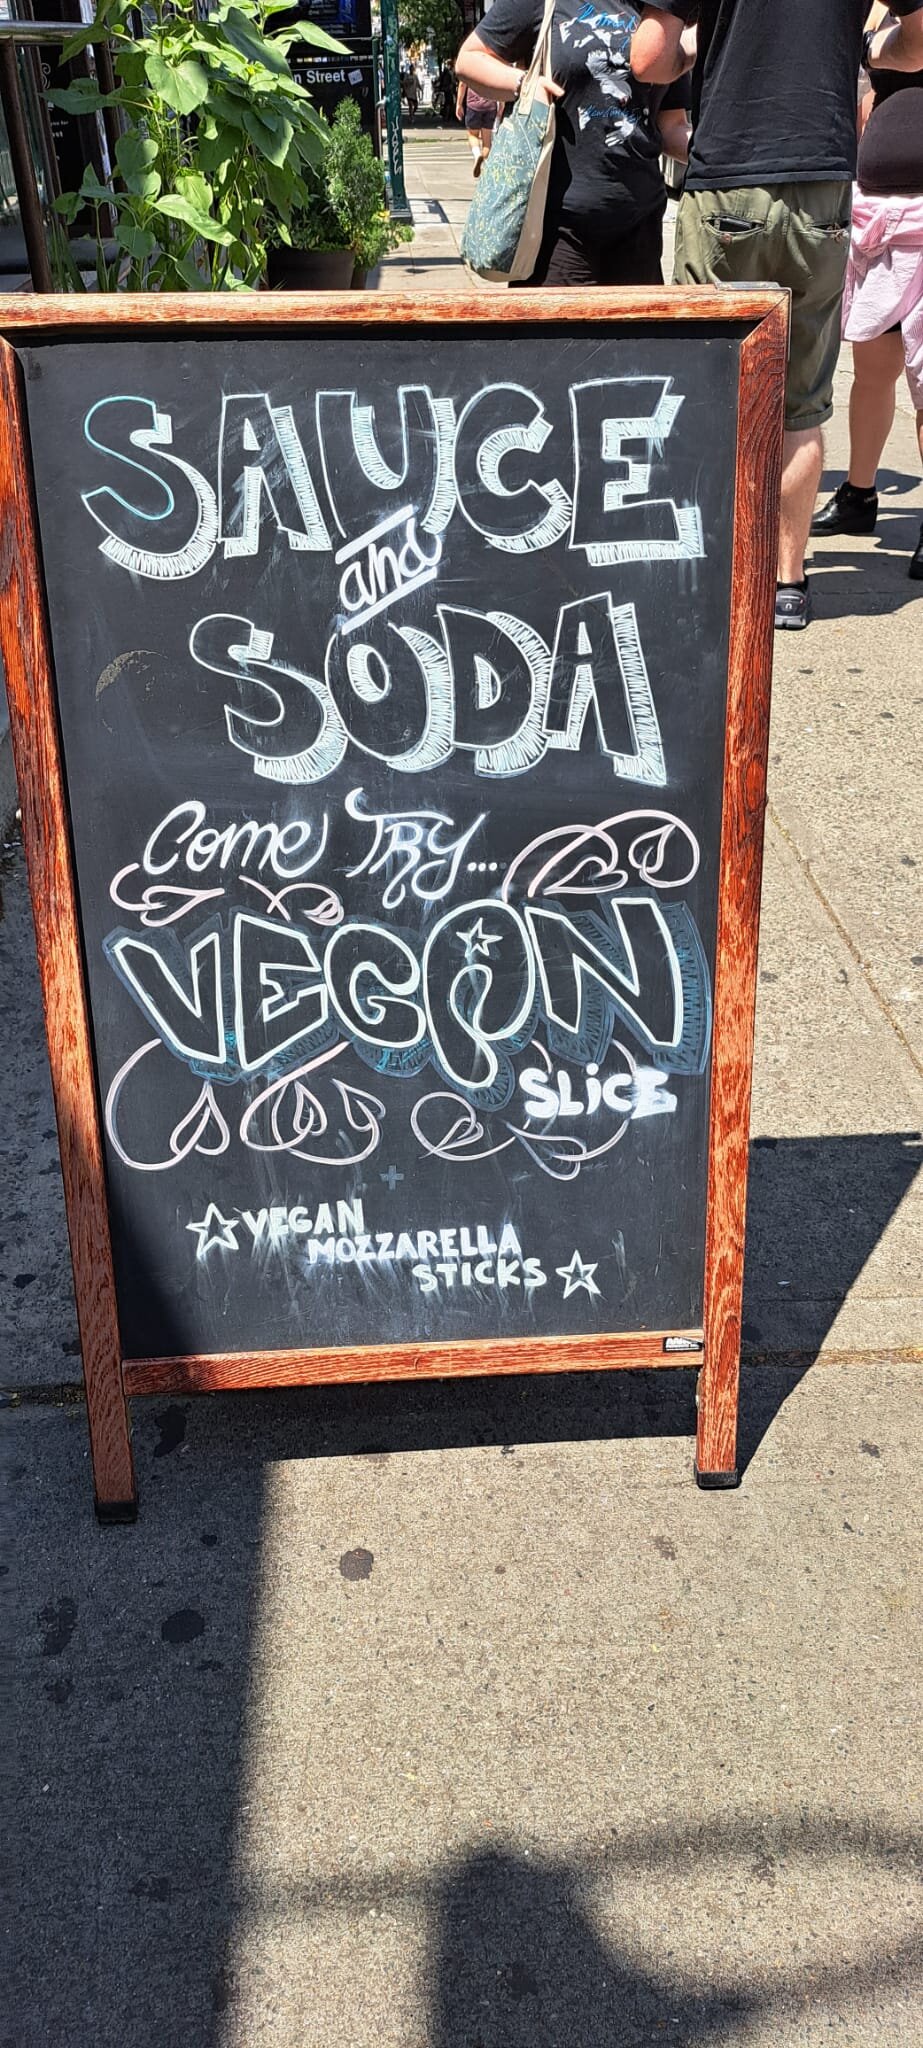 n Street
SAUCE
and
SODA
Come TRY...
VEGAN
SLiCE
+
VEGAN
MOZZARELLA
STICKS